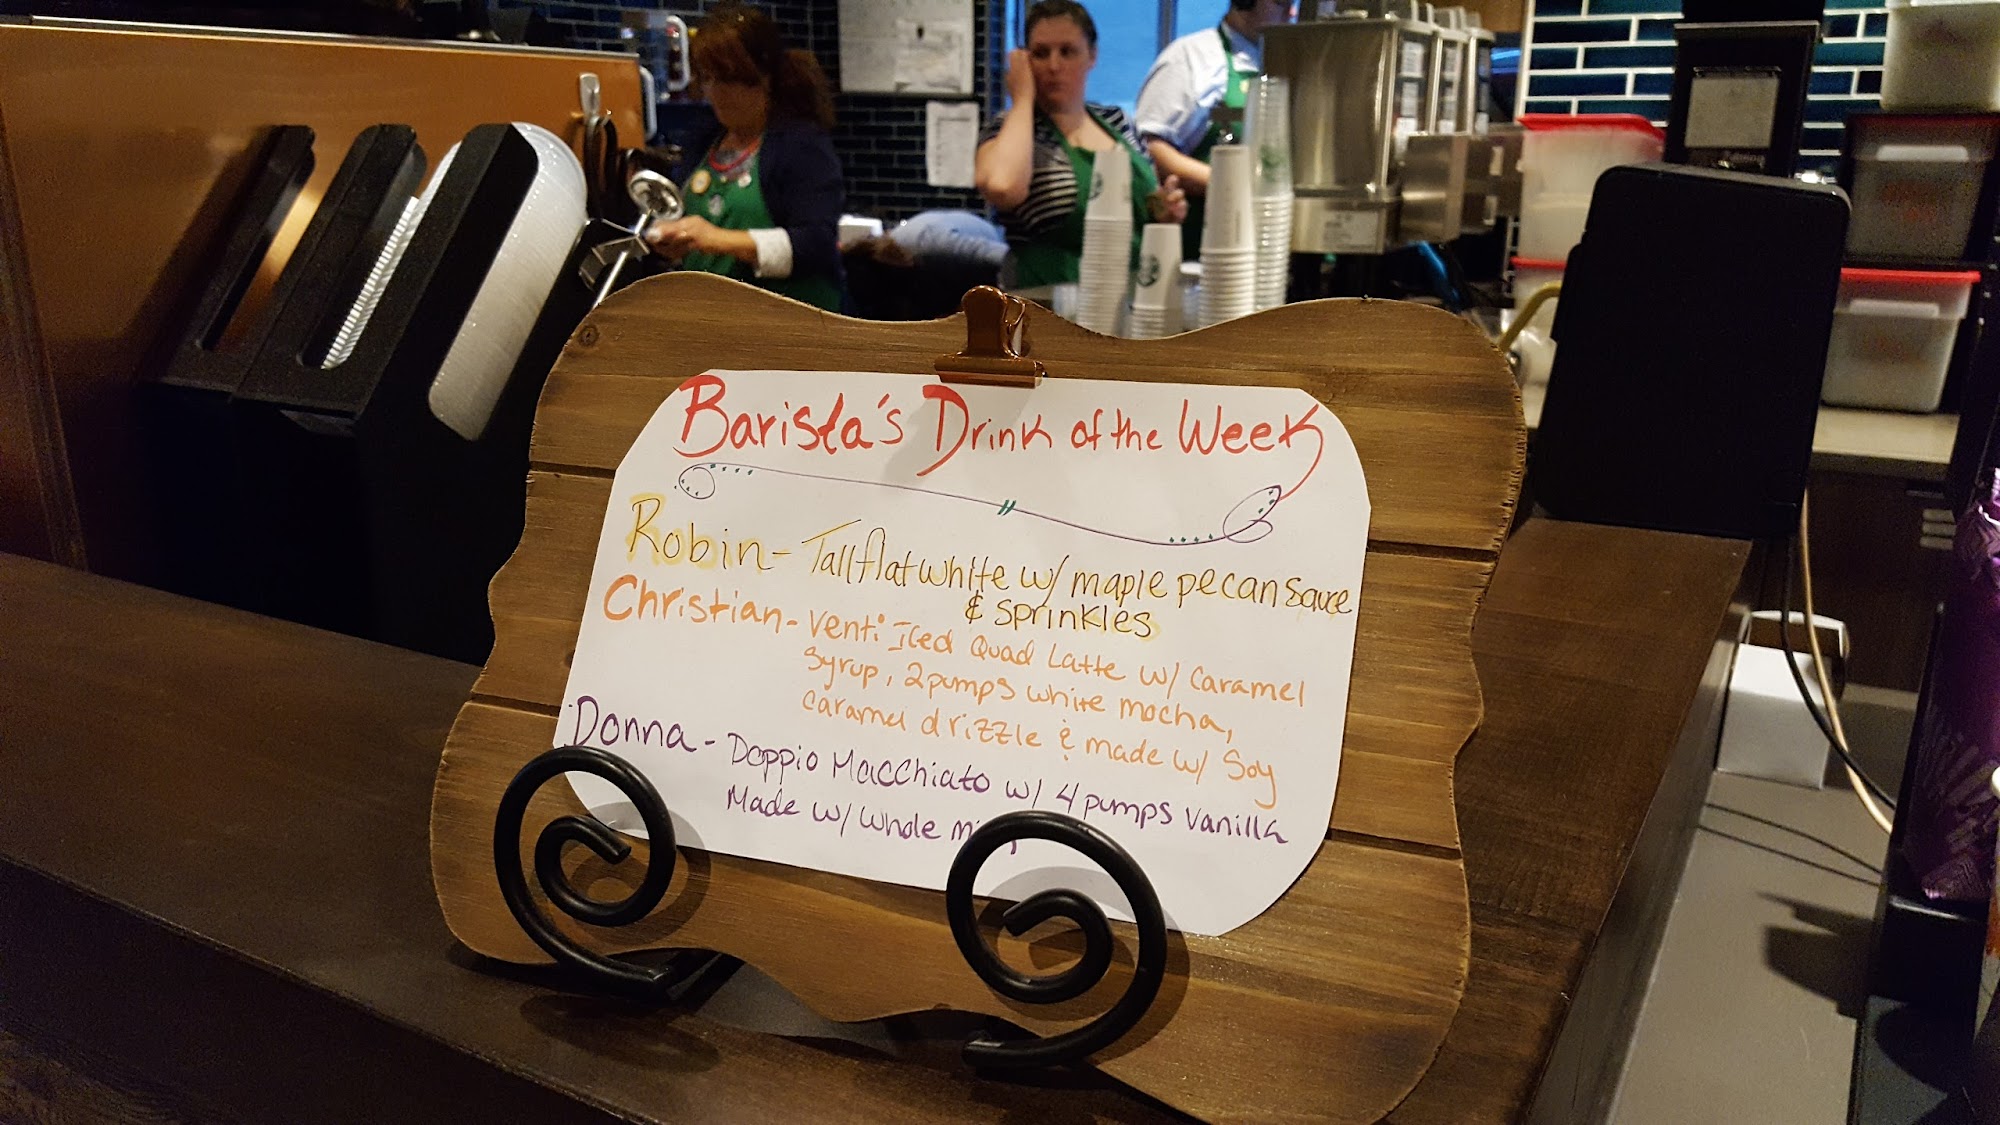 Barista's Drink of the Week
Robin - Tall flat white w/ maple pecan sauce
& sprinkles
Christian - venti Iced Quad Latte w/ Caramel
syrup, 2 pumps white mocha,
caramel drizzle & made w/ Soy
Donna - Doppio Macchiato w/ 4 pumps vanilla
Made w/ whole